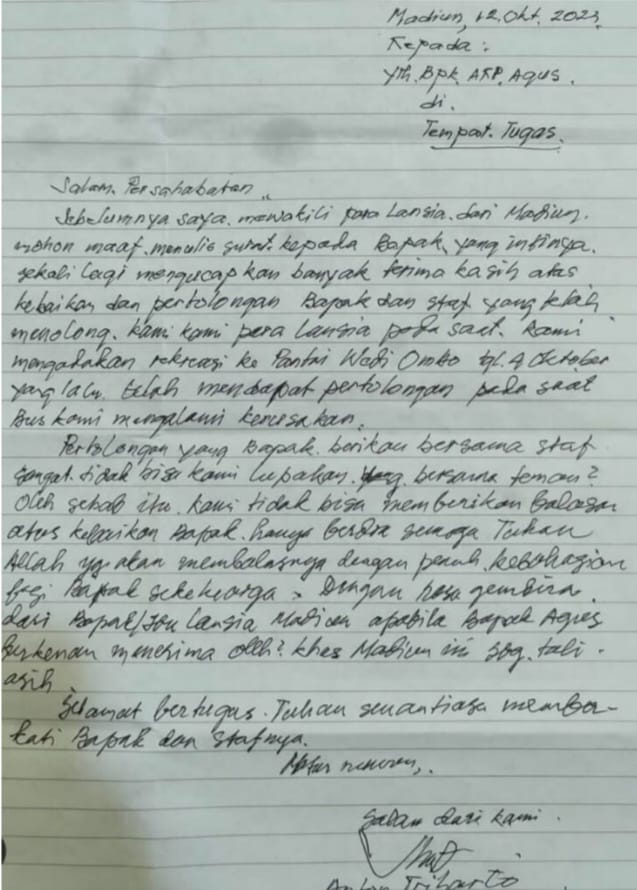 Madiun, 12. Okt. 2023
Kepada :
Yth. Bpk. AKP. Agus.
di.
Tempat. Tugas.
Salam. Persahabatan,,
Sebelumnya saya. mewakili para Lansia. dari Madiun.
mohon maaf. menulis surat. kepada Bapak, yang intinya.
sekali lagi mengucapkan banyak terima kasih atas
kebaikan dan pertolongan Bapak dan staf yang telah
menolong. kami kami para Lansia pada saat. kami
mengadakan rekreasi ke Pantai Wedi Ombo tgl. 4 Oktober
yang lalu. telah mendapat pertolongan pada saat
Bus kami mengalami kerusakan.
Pertolongan yang Bapak. berikan bersama staf
sangat. tidak bisa kami lupakan. bersama teman²
Oleh sebab itu. kami tidak bisa memberikan Balasan
atas kebaikan Bapak. hanya berdoa semoga Tuhan
Allah yg akan membalasnya dengan penuh. kebahagian
bagi Bapak sekeluarga. Dengan rasa gembira.
dari Bapak/Ibu Lansia Madiun apabila Bapak Agus
berkenan menerima oleh² khas Madiun ini sbg. tali.
asih
Selamat bertugas. Tuhan senantiasa member-
kati Bapak dan stafnya.
Matur nuwun,.
Salam dari kami.
Triharto